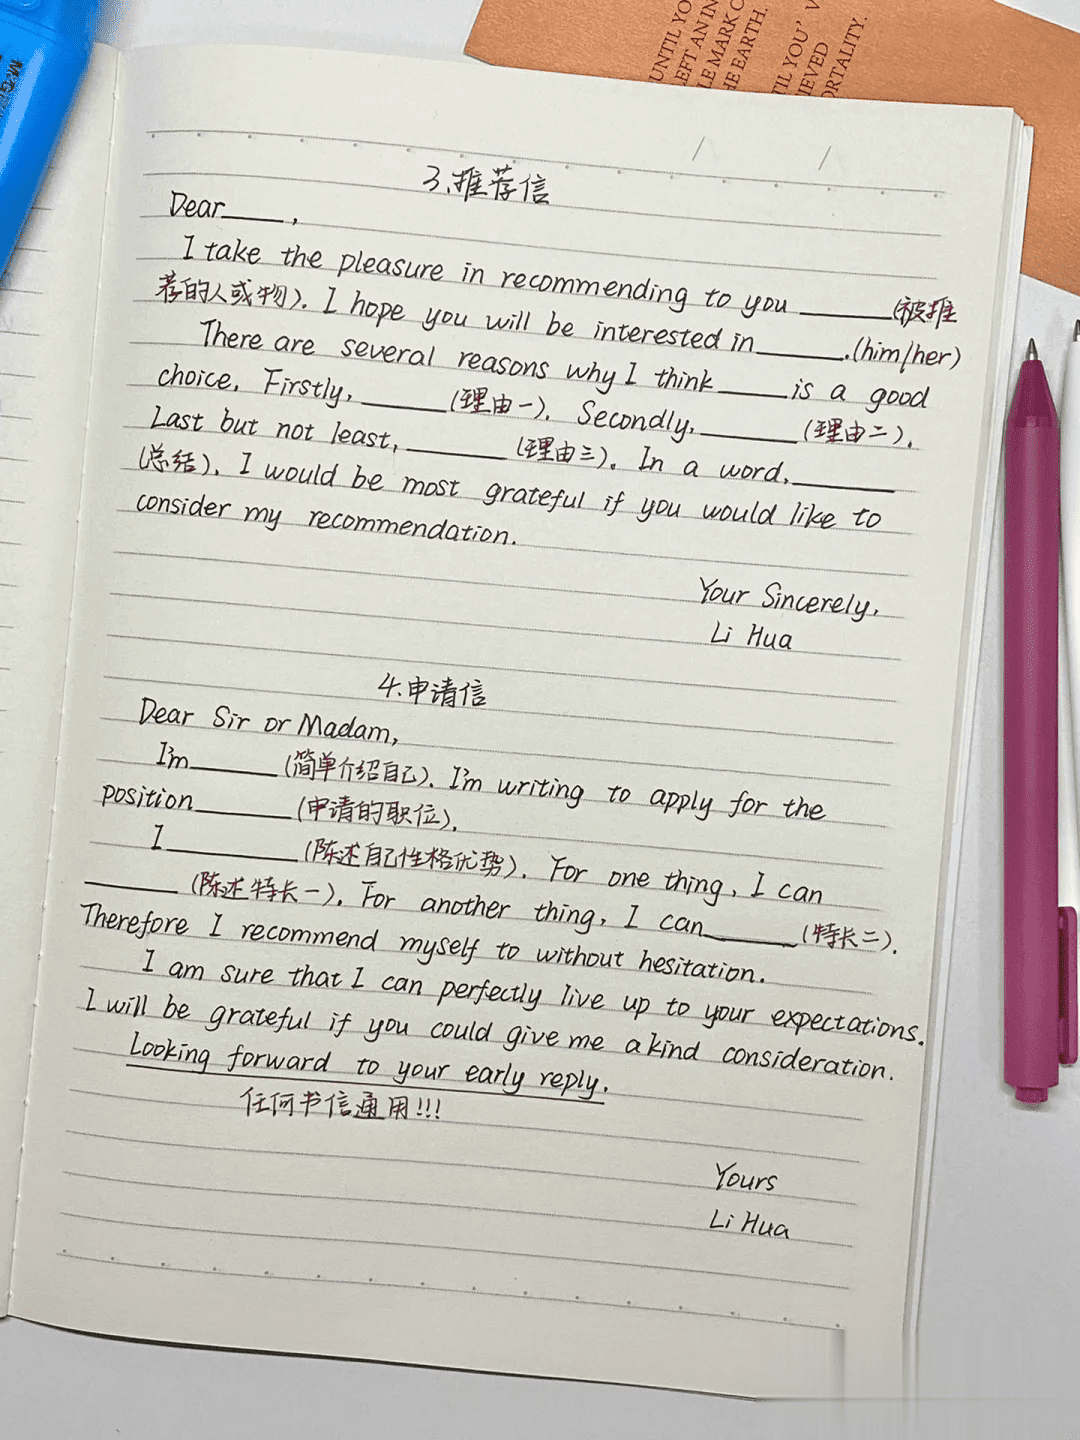 UNTIL YO
LEFT AN IN
LE MARK O
HE EARTH.
TIL YOU'V
IEVED
ORTALITY.
3.推荐信
Dear____,
I take the pleasure in recommending to you ______(被推
荐的人或物). I hope you will be interested in______.(him/her)
There are several reasons why I think____is a good
choice. Firstly,______(理由一). Secondly,______(理由二).
Last but not least,______(理由三). In a word,______
(总结). I would be most grateful if you would like to
consider my recommendation.
Your Sincerely,
Li Hua
4.申请信
Dear Sir or Madam,
I'm______(简单介绍自己). I'm writing to apply for the
position______(申请的职位).
I________(陈述自己性格优势). For one thing, I can
______(陈述特长一). For another thing, I can______(特长二).
Therefore I recommend myself to without hesitation.
I am sure that I can perfectly live up to your expectations.
I will be grateful if you could give me a kind consideration.
Looking forward to your early reply.
任何书信通用!!!
Yours
Li Hua